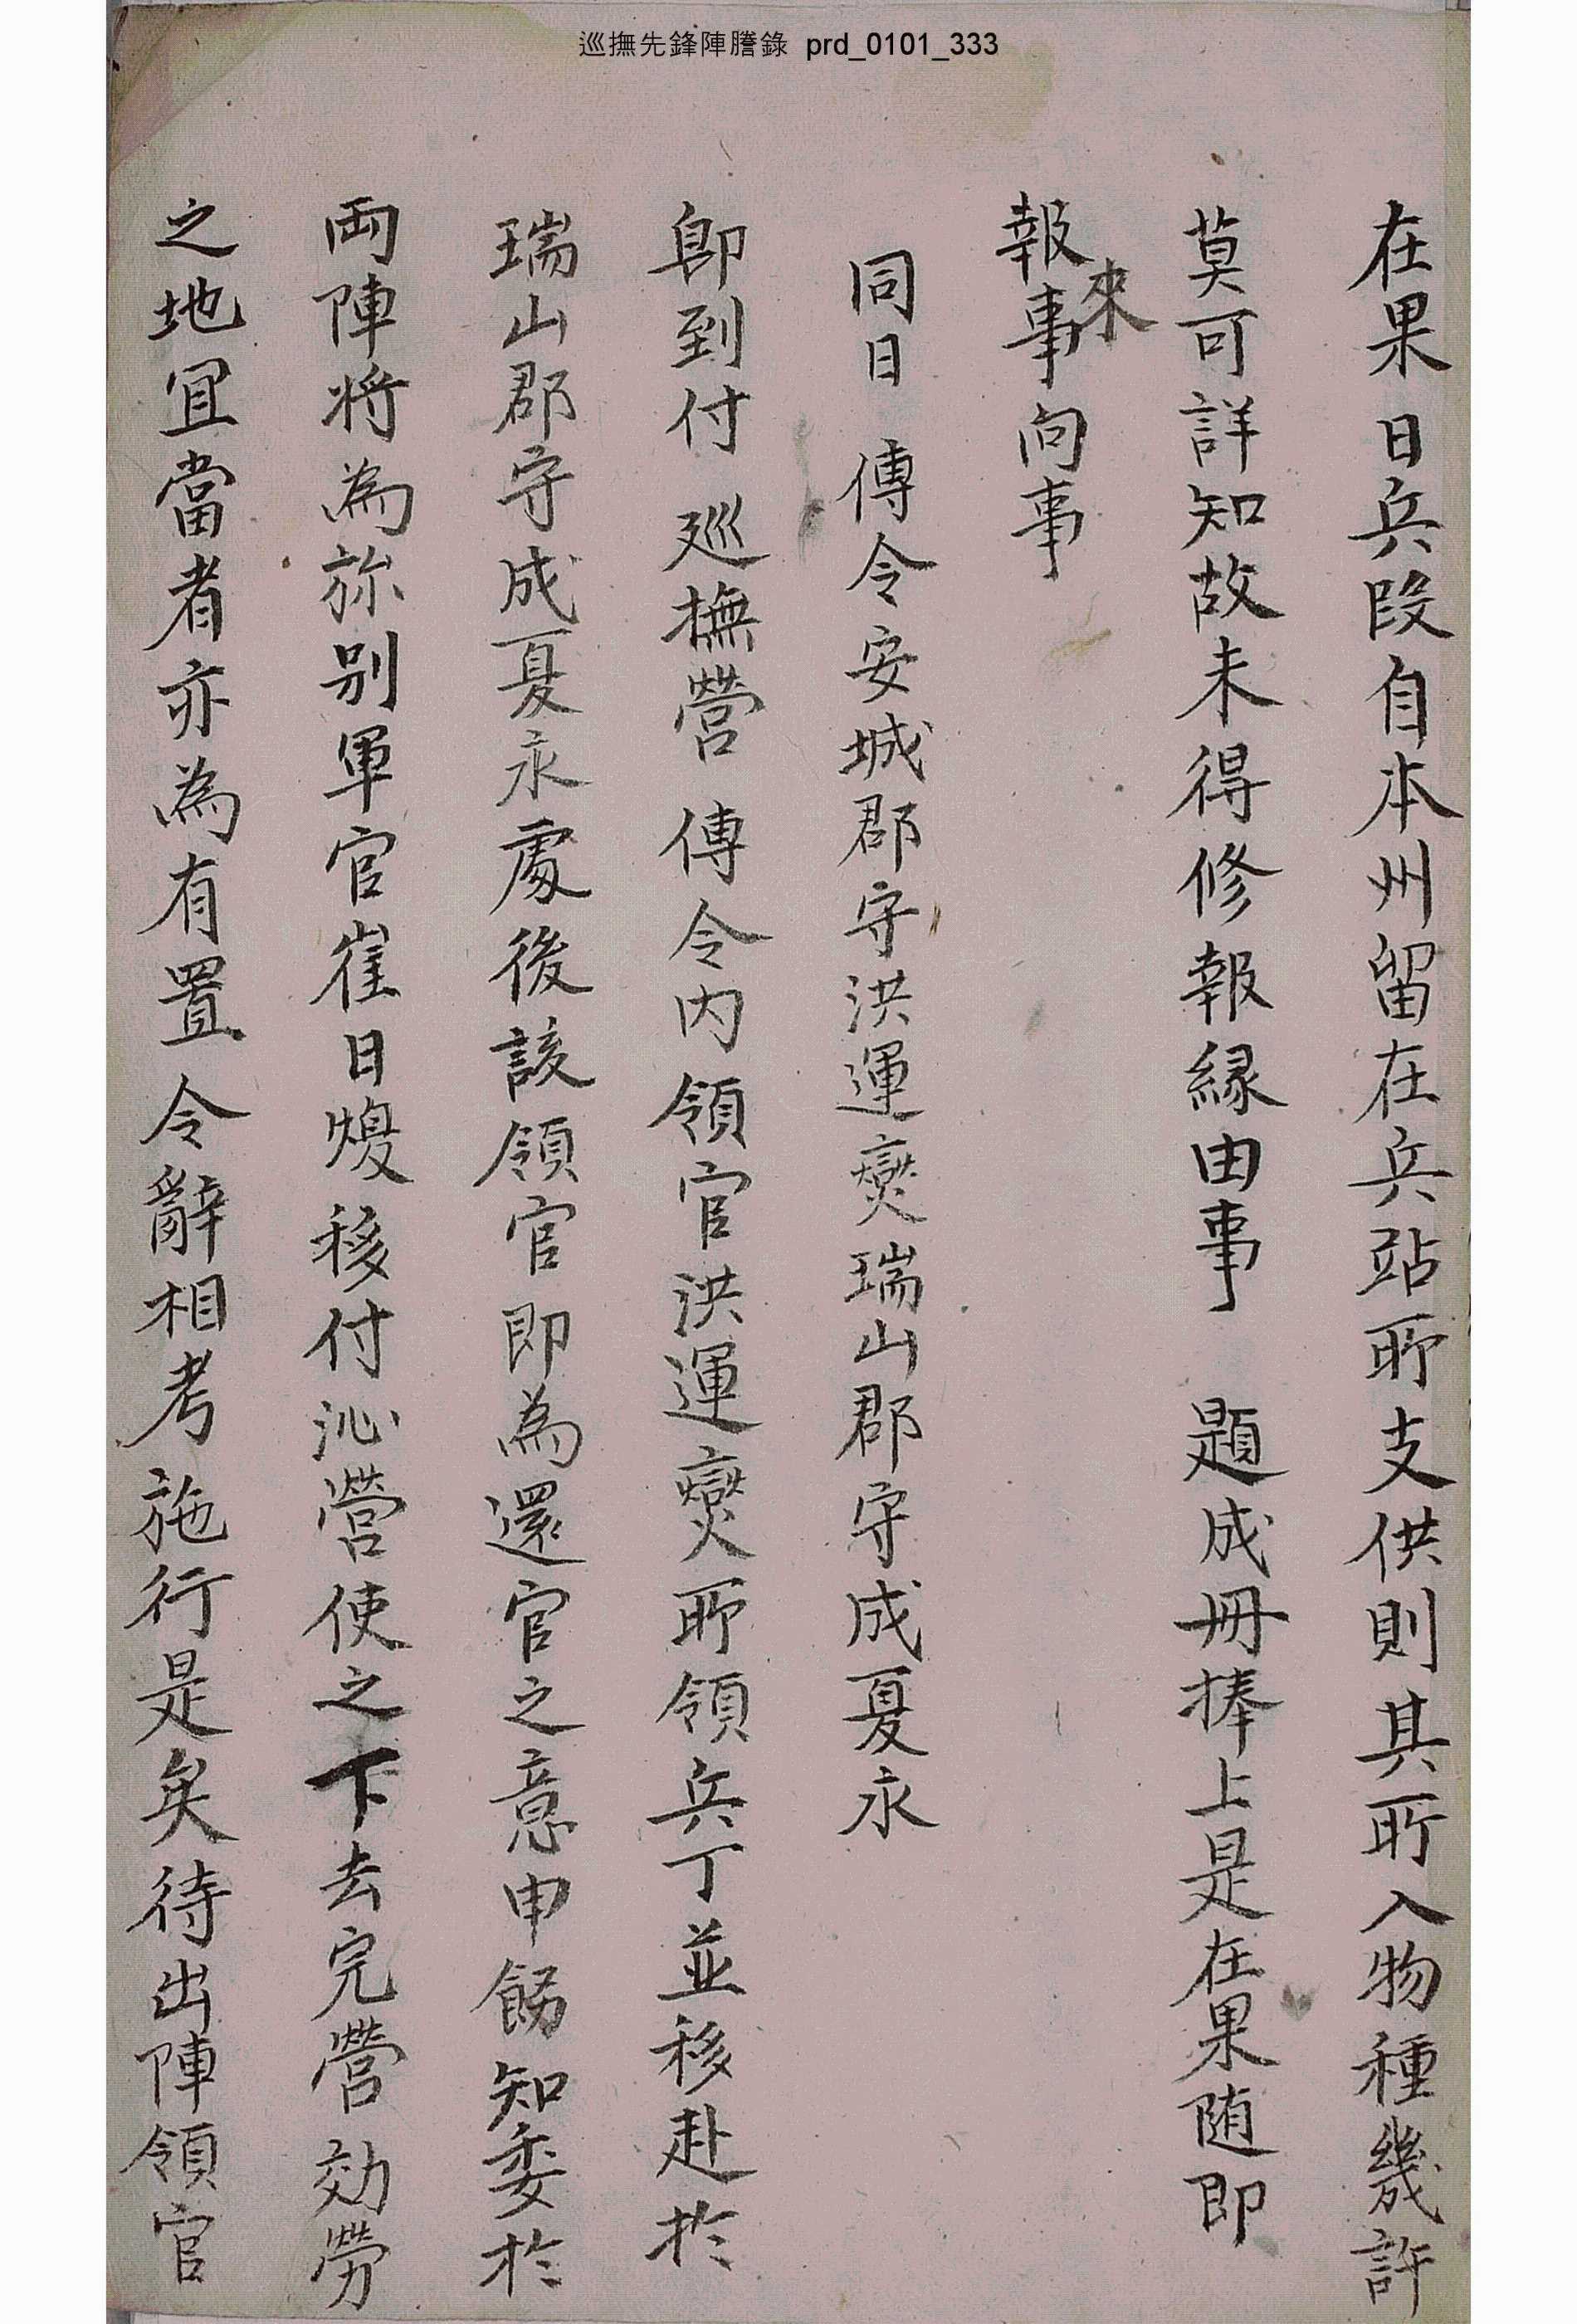 巡撫先鋒陣謄錄 prd_0101_333
在果 日兵段自本州留在兵站所支供則其所入物種幾許
莫可詳知故未得修報緣由事 題成冊捧上是在果随即
報來事向事
同日 傳令安城郡守洪運爕瑞山郡守成夏永
卽到付 巡撫營 傳令內領官洪運爕所領兵丁並移赴於
瑞山郡守成夏永處後該領官即為還官之意申飭知委於
両陣將為旀別軍官崔日煥移付沁營使之下去完營効勞
之地宜當者亦為有置令辭相考施行是矣待出陣領官